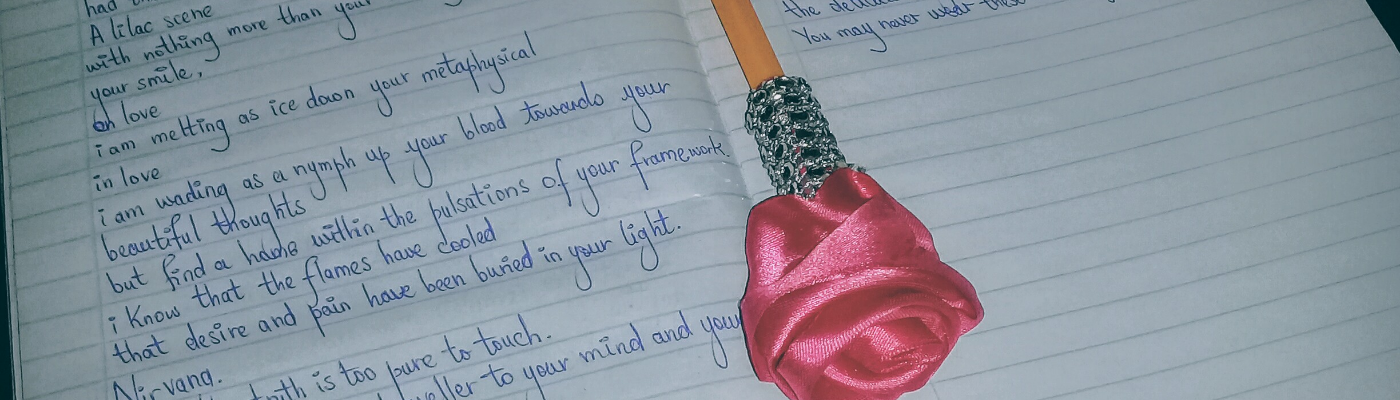 had
A lilac scene
with nothing more than your
your smile,
on love
i am melting as ice down your metaphysical
in love
i am wading as a nymph up your blood towards your
beautiful thoughts
but find a home within the pulsations of your framework.
i know that the flames have cooled
that desire and pain have been buried in your light.
Nirvana.
truth is too pure to touch.
to your mind and your
the
You may never wear these